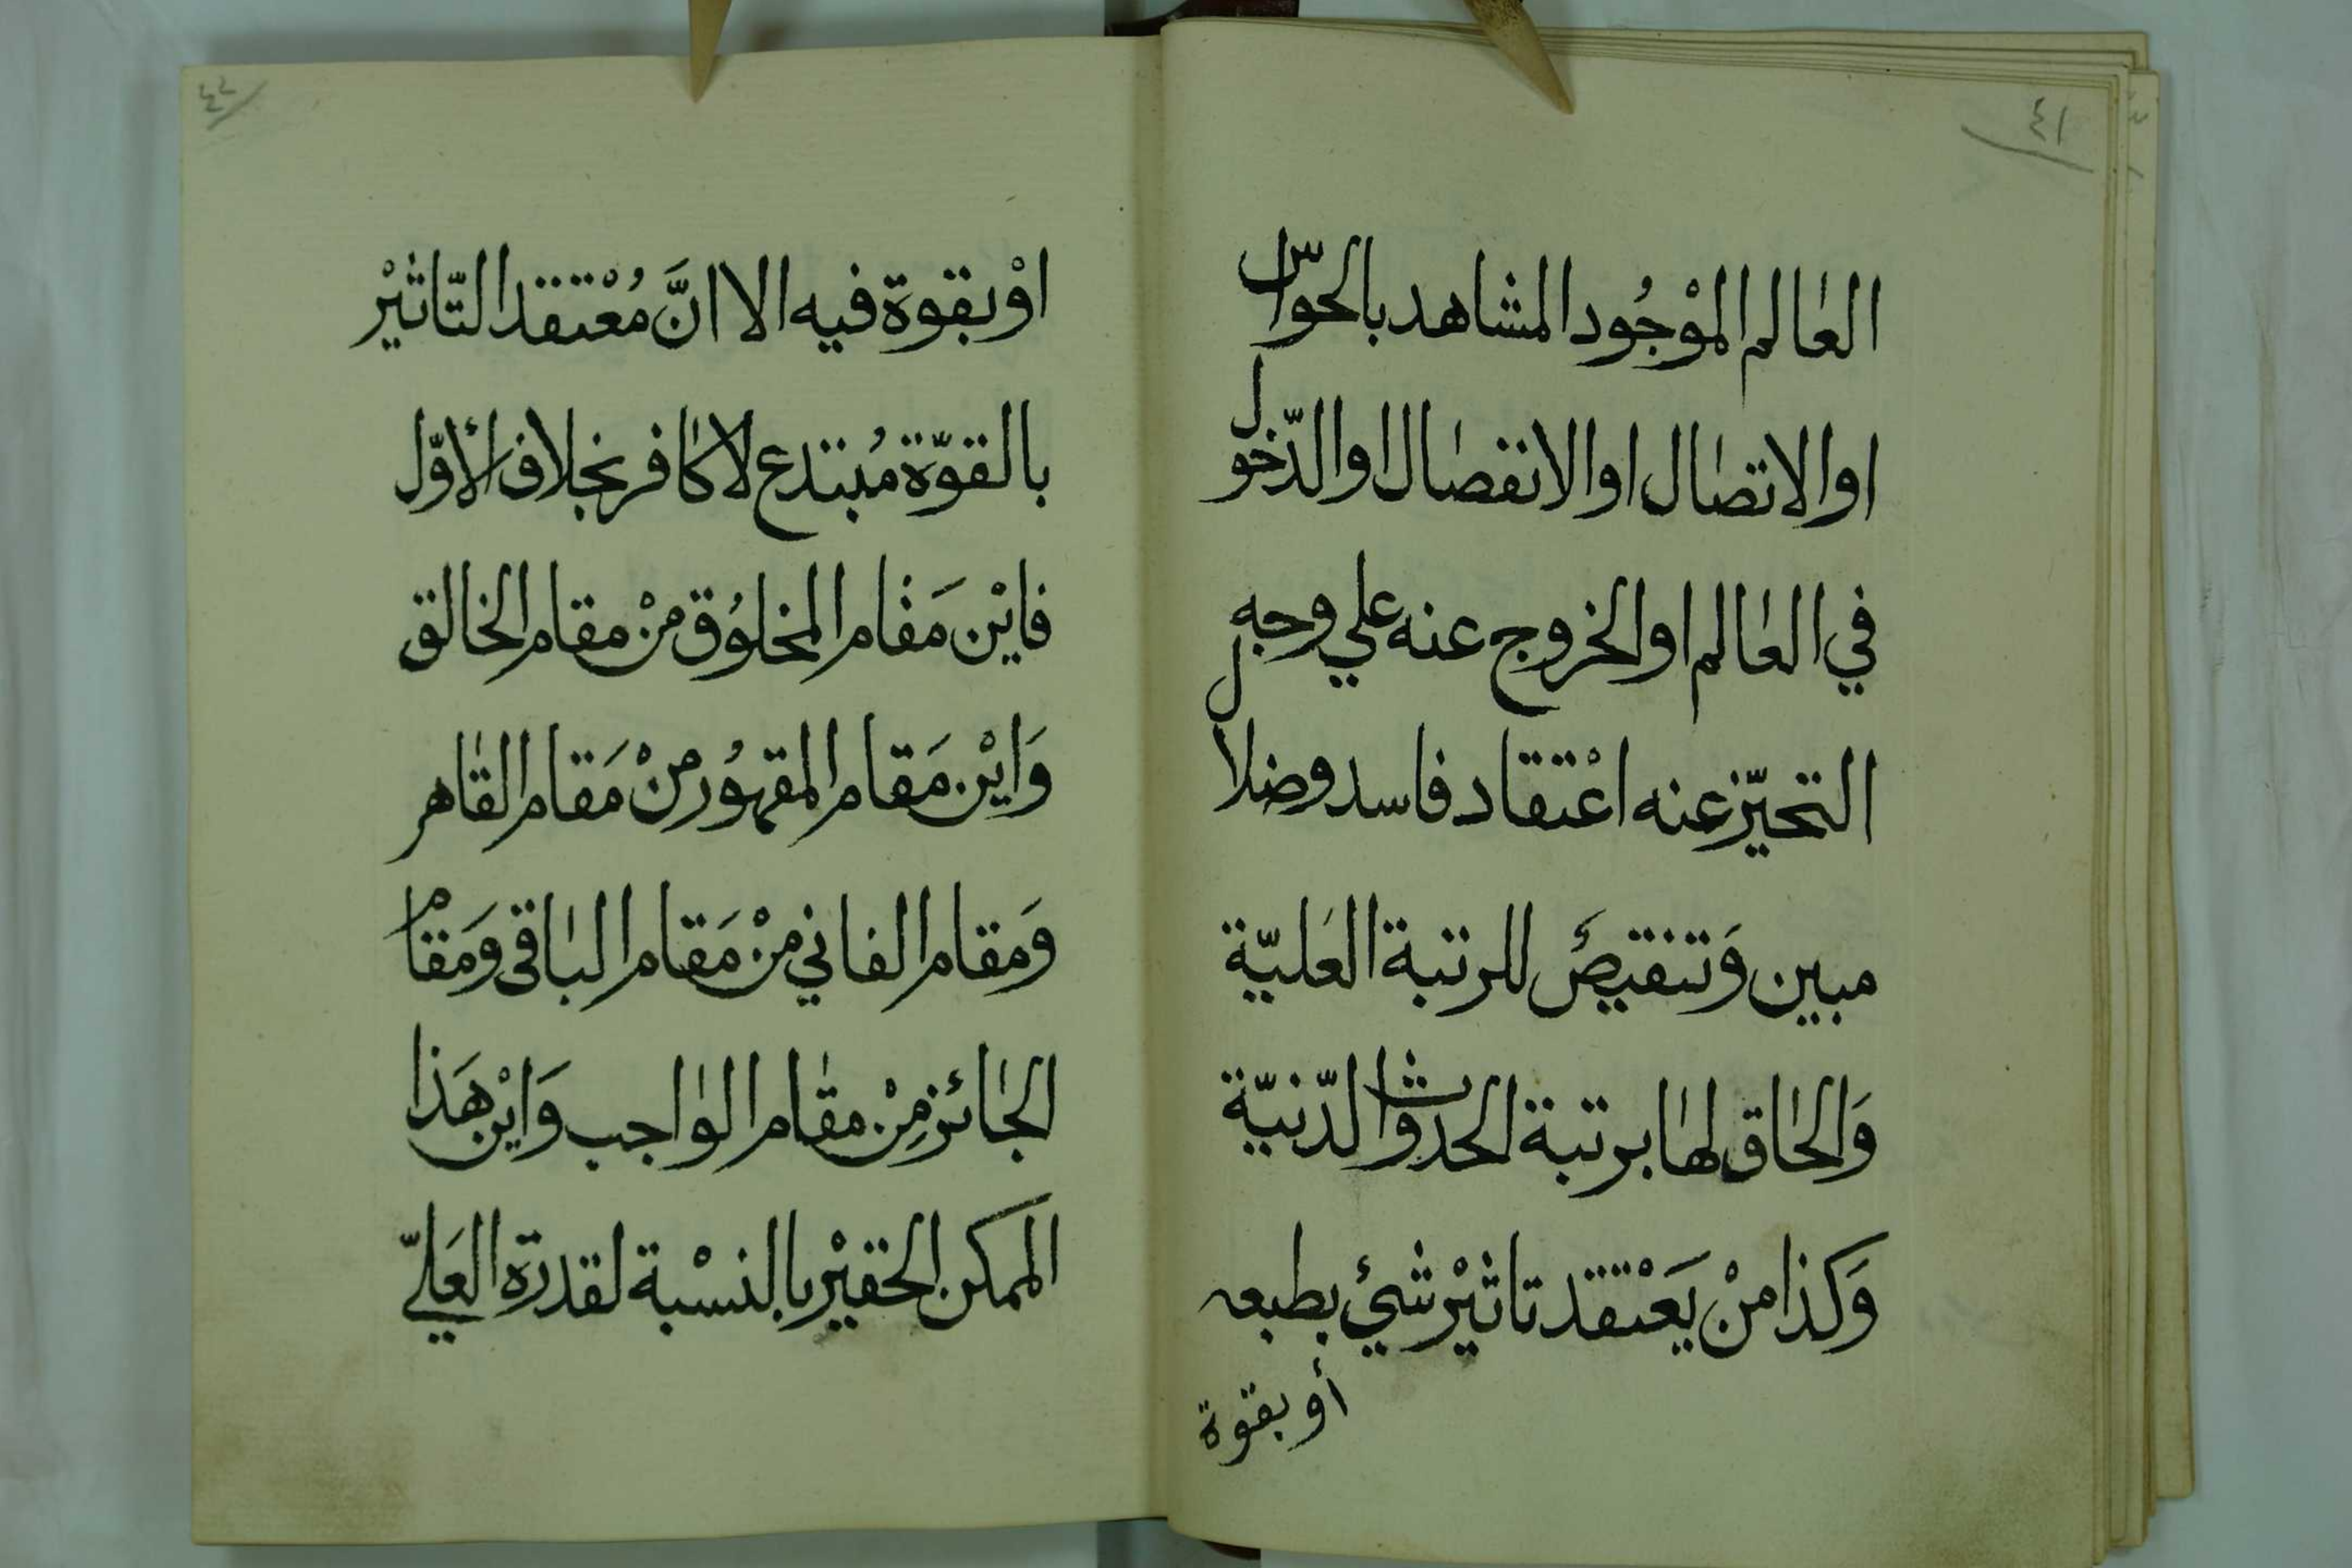 ٤١
العٰالم الموْجُود المشاهد بالحواسّ
او الاتصٰال او الانفصٰال او الدّخول
في العٰالم او الخروج عنه علي وجه
التحيّز عنه اعْتقاد فاسد وضلال
مبين وَتنقيصٌ للرتبة العَليّة
وَالحٰاق لهٰا برتبة الحدوث الدّنيّة
وَكذا منْ يَعْتقد تاثيْر شيْ بطبعه
أو بقوة
٤٢
اوْ بقوة فيه الا انَّ مُعْتقد التّاثيْر
بالقوّة مُبتدع لا كٰافر بخلاف الأوّل
فايْن مَقٰام المخلوُق منْ مقام الخالق
وَايْن مَقام المقهوُر منْ مَقام القٰاهر
وَمقام الفاني منْ مَقام البٰاقي وَمَقام
الجٰائز مِنْ مقٰام الوٰاجب وَايْن هَذا
الممكن الحقيْر بالنسْبة لقدرة العَليّ